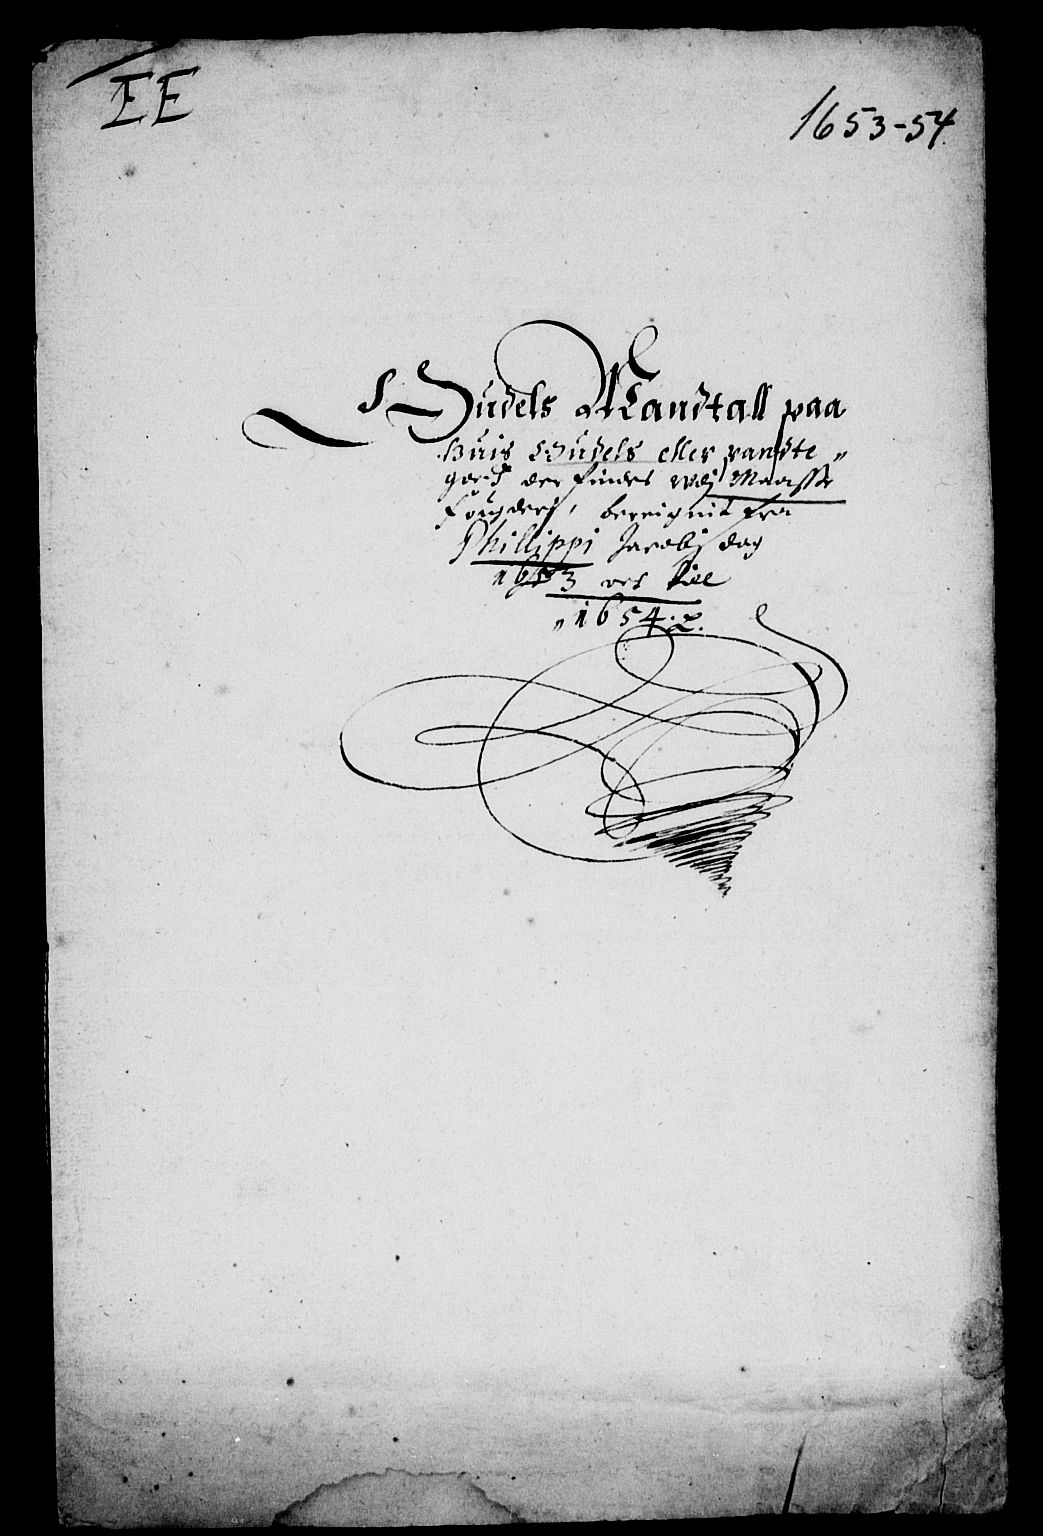 EE
1653-54
Oudels Mandtall paa
huis Oudels eller pandte
goeds der findes udj Maasse
fougderj, bereignit fra
Phillippi Jacobj dag
1653 och til
1654.